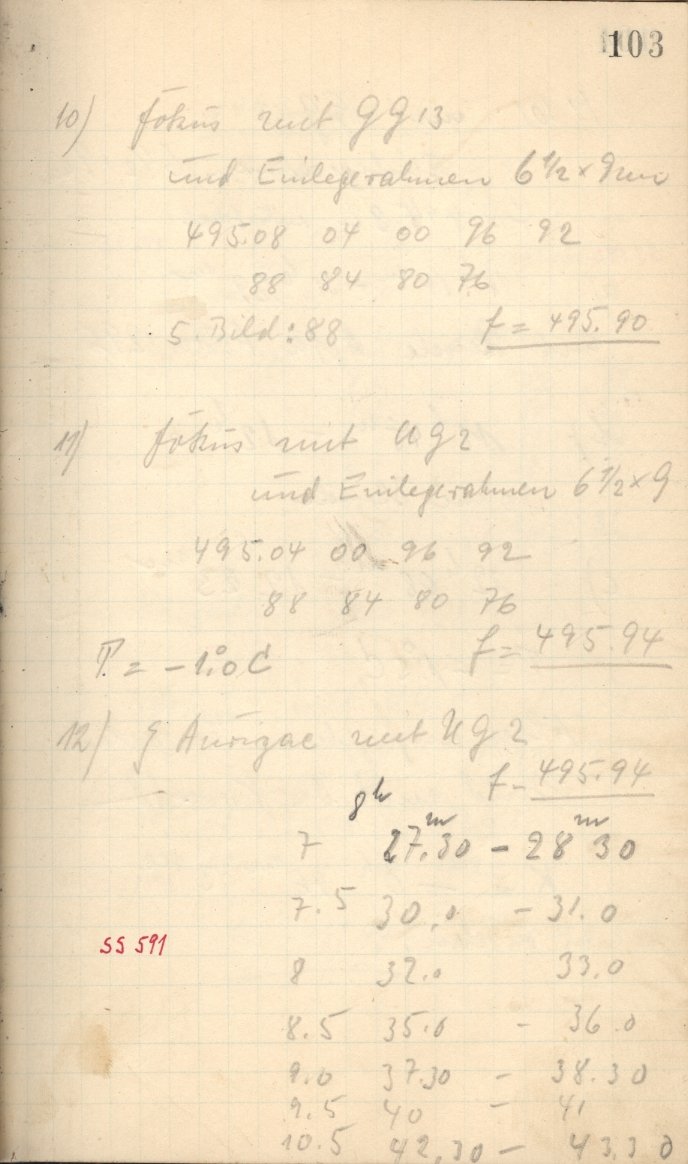 103
10) Fokus mit GG 13
und Einlegerahmen 6 1/2 × 9 cm
495.08 04 00 96 92
88 84 80 76
5. Bild: 88 f = 495.90
11) Fokus mit UG 2
und Einlegerahmen 6 1/2 × 9
495.04 00 96 92
88 84 80 76
T = -1.°0 C f = 495.94
12) ζ Aurigae mit UG 2
f = 495.94
8h
7 27.m30 - 28m30
7.5 30.0 - 31.0
SS 591
8 32.0 33.0
8.5 35.0 - 36.0
9.0 37.30 - 38.30
9.5 40 - 41
10.5 42.30 - 43.30